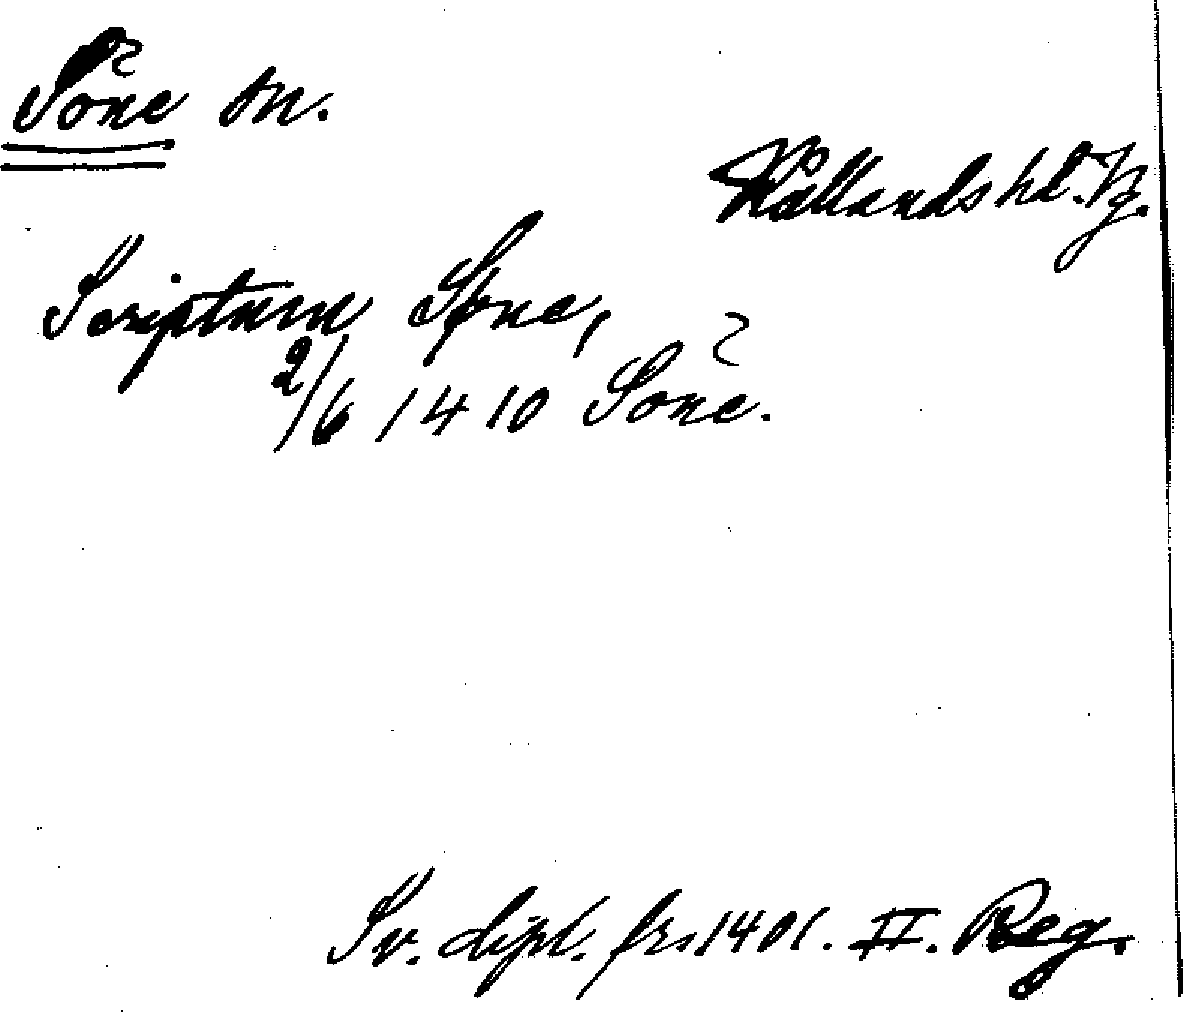 Sône sn.
Kållands hd. Vg.
Scriptum Søne,
2/6 1410 Sone.
Sv. dipl. fr. 1401. II. Reg.